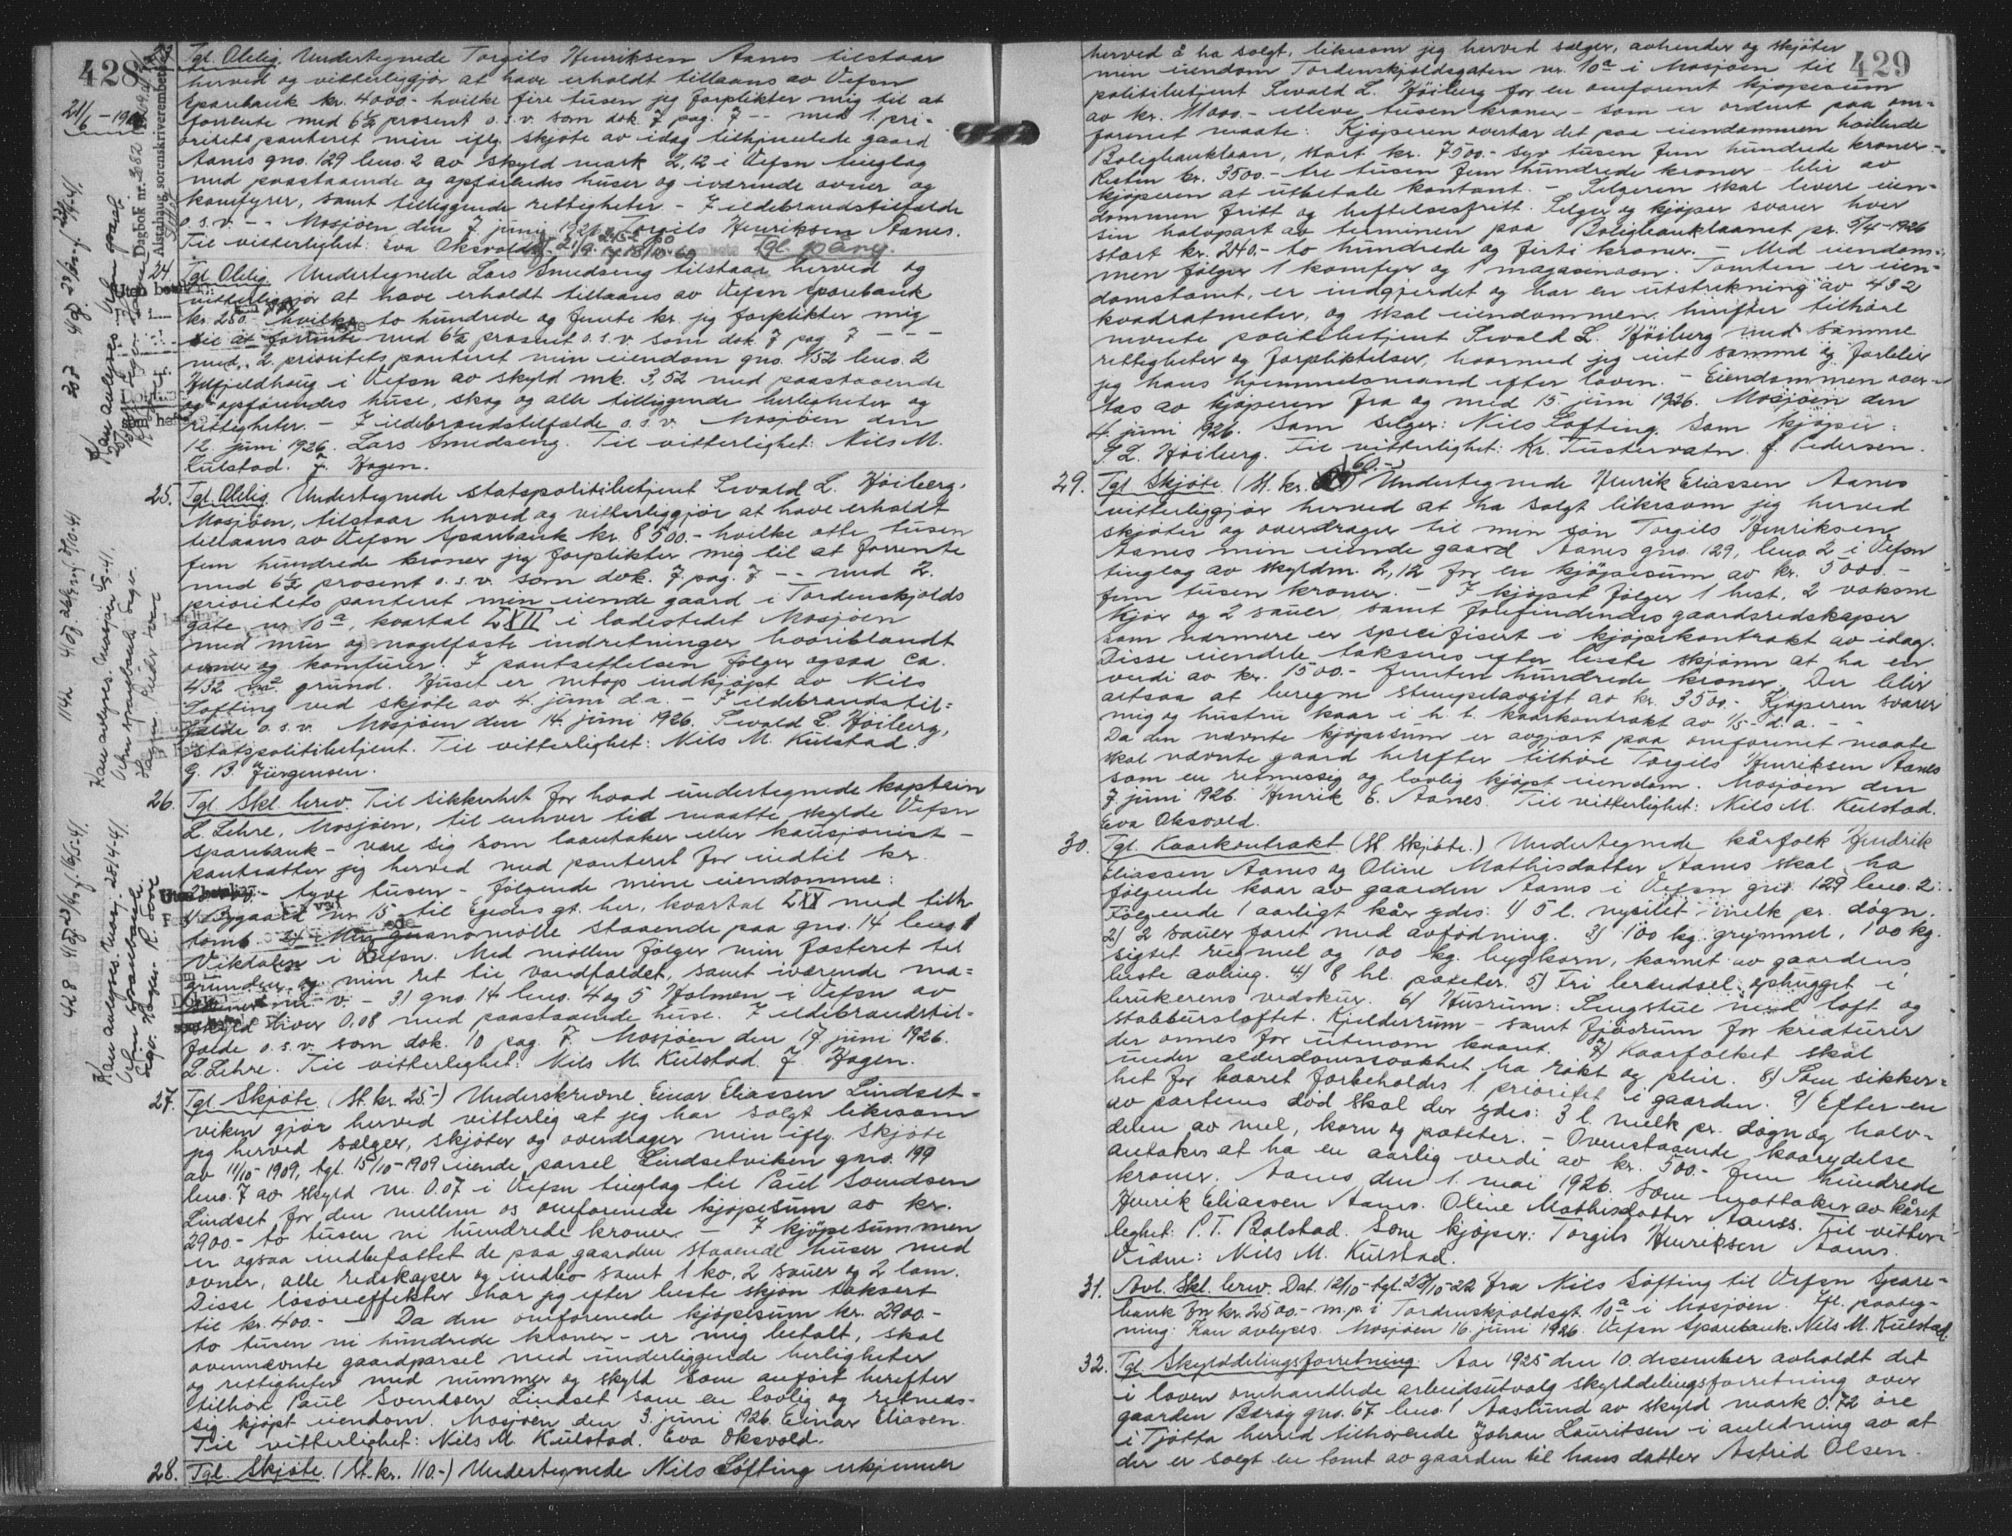 428
21/6 - 192
23. Tgl. Oblig. Undertegnede Torgils Henriksen Aanes tilstaar
herved og vitterliggjør at have erholdt tillaans av Vefsn
Sparebank kr. 4000.- hvilke fire tusen jeg forplikter mig til at
forrente med 6½ prosent o.s.v. som dok 7 pag. 7 -- med 1. pri-
oritets panteret min iflg. skjøte av idag tilhjemlede gaard
Aanes gno. 129 bno. 2 av skyld mark 2,12 i Vefsn tinglag
med paastaaende og opførendes huser og iværende ovner og
komfyrer, samt tilliggende rettigheter - I ildebrandstilfælde
o.s.v. -- Mosjøen den 7. juni 1926. Torgils Henriksen Aanes.
Til vitterlighet: Eva Oksvold.
24. Tgl. Oblig. Undertegnede Lars Smedseng tilstaar herved og
vitterliggjør at have erholdt tillaans av Vefsn Sparebank
kr. 250.- hvilke to hundrede og femti kr. jeg forplikter mig
til at forrente med 6½ prosent o.s.v. som dok 7 pag 7 ---
med 2. prioritets panteret min eiendom gno. 152 bno. 2
i Vefsn av skyld mk. 3,52 med paastaaende
og opførendes huse, skog og alle tilliggende herligheter og
rettigheter. - I ildebrandstilfælde o.s.v. Mosjøen den
12. juni 1926. Lars Smedseng. Til vitterlighet: Nils M.
Kulstad. F. Hagen.
25. Tgl. Oblig. Undertegnede statspolitibetjent Sevald L. Høiberg,
Mosjøen, tilstaar herved og vitterliggjør at have erholdt
tillaans av Vefsn Sparebank kr. 8500.- hvilke otte tusen
fem hundrede kroner jeg forplikter meg til at forrente
med 6½ prosent o.s.v. som dok. 7 pag. 7 -- med 2.
prioritets panteret min eiende gaard i Tordenskjolds
gate nr 10a, kvartal LXII i ladestedet Mosjøen
med mur og nagelfaste indretninger hvoriblandt
ovner og komfurer. I pantsettelsen følger ogsaa ca.
432 m² grund. Huset er netop indkjøpt av Nils
Løfting ved skjøte av 4. juni d.a. - I ildebrandstil-
fælde o.s.v. Mosjøen den 14. juni 1926. Sevald L. Høiberg,
statspolitibetjent. Til vitterlighet: Nils M. Kulstad.
G. B. Jürgensen.
26. Tgl. Skl. brev. Til sikkerhet for hvad undertegnede kaptein
L. Lehre, Mosjøen, til enhver tid maatte skylde Vefsn
Sparebank - være sig som laantaker eller kausjonist -
pantsætter jeg herved med panteret for indtil kr.
20000.- tyve tusen - følgende mine eiendomme:
1) Bygaard nr. 15 til Egedes gt. her, kvartal LIX med tilh.
tomt 2) Min guanomølle staaende paa gno. 14 bno 1
Vikdalen i Vefsn. Med møllen følger min festeret til
grunden og min ret til vandfaldet, samt iværende ma-
skiner m. v. - 3) gno. 14 bno. 4 og 5 Holmen i Vefsn av
skyld tiver 0.08 med paastaaende huse. I ildebrandstil-
fælde o.s.v. som dok. 10 pag. 7. Mosjøen den 17. juni 1926.
L. Lehre. Til vitterlighet: Nils M. Kulstad. F Hagen.
27. Tgl. Skjøte (St. kr. 25.-) Underskrevne Einar Eliassen Lindset-
viken gjør herved vitterlig at jeg har solgt likesom
jeg herved sælger, skjøter og overdrager min iflg. skjøte
av 11/10-1909, tgl. 15/10-1909 eiende parsel Lindsetviken gno. 199
bno. 7 av skyld m. 0.07 i Vefsn tinglag til Paul Svendsen
Lindset for den mellem os omforenede kjøpesum av kr.
2900.- to tusen ni hundrede kroner - I kjøpesummen
er ogsaa indbefattet de paa gaarden staaende huser med
ovner, alle redskaper og indbo samt 1 ko, 2 sauer og 2 lam.
Disse løsøreeffekter har jeg efter beste skjøn taksert
til kr. 400.- - Da den omforenede kjøpesum kr. 2900.-
to tusen ni hundrede kroner - er mig betalt, skal
ovennevnte gaardparsel med underliggende herligheter
og rettigheter med nummer og skyld som anført herefter
tilhøre Paul Svendsen Lindset som en lovlig og retmæs-
sig kjøpt eiendom. Mosjøen den 3. juni 1926. Einar Eliasen.
Til vitterlighet: Nils M. Kulstad. Eva Oksvold.
28. Tgl. Skjøte. (St. kr. 110.-) Undertegnede Nils Løfting erkjenner
429
herved å ha solgt, likesom jeg herved sælger, avhender og skjøter
min eiendom Tordenskjoldsgaten nr. 10a i Mosjøen til
politibetjent Sevald L. Høiberg for en omforent kjøpesum
av kr. 11000.- elleve tusen kroner - som er ordnet paa om-
forenet maate: Kjøperen overtar det paa eiendommen hvilende
Boligbanklaan, stort kr. 7500.- syv tusen fem hundrede kroner -
Resten kr. 3500.- tre tusen fem hundrede kroner - blir av
kjøperen at utbetale kontant. - Selgeren skal levere eien-
dommen fritt og heftelsesfritt. Selger og kjøper svarer hver
sin halvpart av terminen paa Boligbanklaanet pr. 5/4-1926
stort kr. 240.- to hundrede og firti kroner. - Med eiendom-
men følger 1 komfyr og 1 magasinovn. Tomten er eien-
domstomt, er indgjerdet og har en utstrekning av 432
kvadratmeter, og skal eiendommen herefter tilhøre
nevnte politibetjent Sevald L. Høiberg med samme
rettigheter og forpliktelser, hvormed jeg eiet samme og forblir
jeg hans hjemmelsmand efter loven. - Eiendommen over-
tas av kjøperen fra og med 15 juni 1926. Mosjøen den
4. juni 1926. Som selger: Nils Løfting. Som kjøper:
S. L. Høiberg. Til vitterlighet: Kr. Tustervatn. J. Pedersen.
29. Tgl. Skjøte. (St. kr. ) Undertegnede Henrik Eliassen Aanes
vitterliggjør herved at ha solgt likesom jeg herved
skjøter og overdrager til min søn Torgils Henriksen
Aanes min eiende gaard Aanes gno. 129, bno. 2 i Vefsn
tinglag av skyldm. 2,12 for en kjøpesum av kr. 5000.-
fem tusen kroner. - I kjøpet følger 1 hest, 2 voksne
kjør og 2 sauer samt forefindendes gaardsredskaper
som nærmere er specifisert i kjøpekontrakt av idag.
Disse eiendele takseres efter beste skjønn at ha en
verdi av kr. 1500.- femten hundrede kroner. Der blir
altsaa at beregne stempelavgift av kr. 3500.- Kjøperen svarer
mig og hustru kaar i h. t. kaarkontrakt av 1/5- d.a. --
Da den nævnte kjøpesum er avgjort paa omforenet maate
skal nævnte gaard herefter tilhøre Torgils Henriksen Aanes
som en retmessig og lovlig kjøpt eiendom. Mosjøen den
7 juni 1926. Henrik E. Aanes. Til vitterlighet: Nils M. Kulstad.
Eva Oksvold.
30. Tgl. Kaarkontrakt. (St. Skjøte.) Undertegnede kårfolk Hendrik
Eliassen Aanes og Oline Mathisdatter Aanes skal ha
følgende kaar av gaarden Aanes i Vefsn gno 129 bno. 2:
Følgende 1 aarligt kår ydes: 1) 5 l. nysilet melk pr. døgn.
2) 2 sauer foret med avfødning. 3) 100 kg. grynmel, 100 kg.
sigtet rugmel og 100 kg. byggkorn, kornet av gaardens
beste avling. 4) 8 hl. poteter. 5) Fri brændsel ophugget i
brukerens vedskur. 6) Husrum: Sengstue med loft og
stabbursloftet. Kjelderrum - samt fjøsrum for kriaturer
der ønnes for utenom kaaret. 7) Kaarfolket skal
under alderdomssvakhet ha røkt og pleie. 8) Som sikker-
het for kaaret forbeholdes 1. prioritet i gaarden. 9) Efter en
av partenes død skal der ydes: 3 l. melk pr. døgn og halv-
delen av mel, korn og poteter. - Ovenstaaende kaarydelse
antakes at ha en aarlig verdi av kr. 500.- fem hundrede
kroner. Aanes den 1. mai 1926. Som mottaker av kåret
Henrik Eliassen Aanes. Oline Mathisdatter Aanes. Til vitter-
lighet: P. T. Bolstad. Som kjøper: Torgils Henriksen Aanes.
Vidne: Nils M. Kulstad.
31. Avl. Skl. brev. Dat. 12/10- tgl. 27/10-22 fra Nils Løfting til Vefsn Spare-
bank for kr. 2500.- m.p. i Tordenskjoldsgt 10a i Mosjøen. Ifl. paateg-
ning: Kan avlyses. Mosjøen 16. juni 1926. Vefsn Sparebank. Nils M. Kulstad.
32. Tgl. Skylddelingsforretning. Aar 1925 den 10. desember avholdt det
i loven omhandlede arbeidsutvalg skylddelingsforretning over
gaarden Bærøy gno. 67 bno. 1 Aaslund av skyld mark 0.72 øre
i Tjøtta herred tilhørende Johan Lauritsen i anledning av at
der er solgt en tomt av gaarden til hans datter Astrid Olsen.